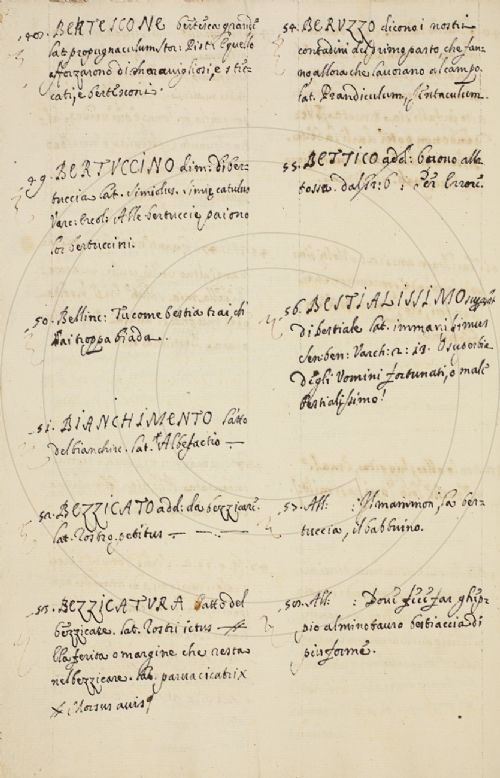 48. BERTESCONE bertesca grande
lat. propugnaculum. Stor: Pist: E quello
afforzarono di
cati, e bertesconi.
49. BERTVCCINO dim: di ber-
tuccia lat. simiolus. simiæ catulus
Varc: Ercol: Alle bertuccie paiono
lor bertuccini.
50. Bellinc: Tu come bestia trai, ch
hai troppa biada.
51. BIANCHIMENTO l'atto
del bianchire. lat. Albefactio —
52. BEZZICATO add: da bezzicare.
lat. rostro petitus — — . —
53. BEZZICATVRA l'atto del
bezzicare. lat. Rostri ictus
E la ferita o margine che resta
nel bezzicare. lat. parva cicatrix
Morsus avis
54. BERVZZO dicono i nostri
contadini del primo pasto, che fan-
no, allora che lavorano al campo.
lat. Prandiculum, Ientaculum.
55. BETTICO add: buono alla
tossa. dal Er: 6: Per Errore.
56. BESTIALISSIMO superl:
di bestiale lat. immanissimus
Sen: ben: Varch: 2: 13. O superbia
degli Vomini fortunati, o male
bestialissimo!
57. All: : Il mammon', la ber-
tuccia, il babbuino.
58. All: : Dove far ghep-
pio al minotauro bestiaccia di-
sciforme.